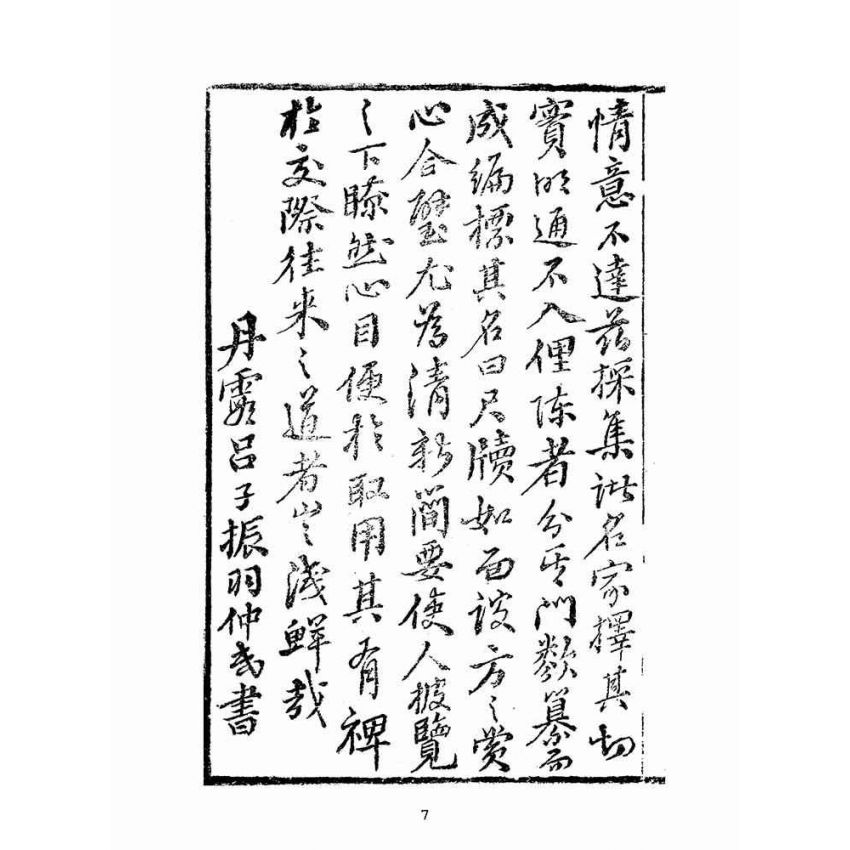 情意不達茲採集諸名家擇其切
實明通不入俚陳者分其門類纂而
成編標其名曰尺牘如面談方之賞
心合璧尤為清新簡要使人披覽
之下瞭然心目便於取用其有裨
於交際往來之道者豈淺鮮哉
丹霞呂子振羽仲氏書
7